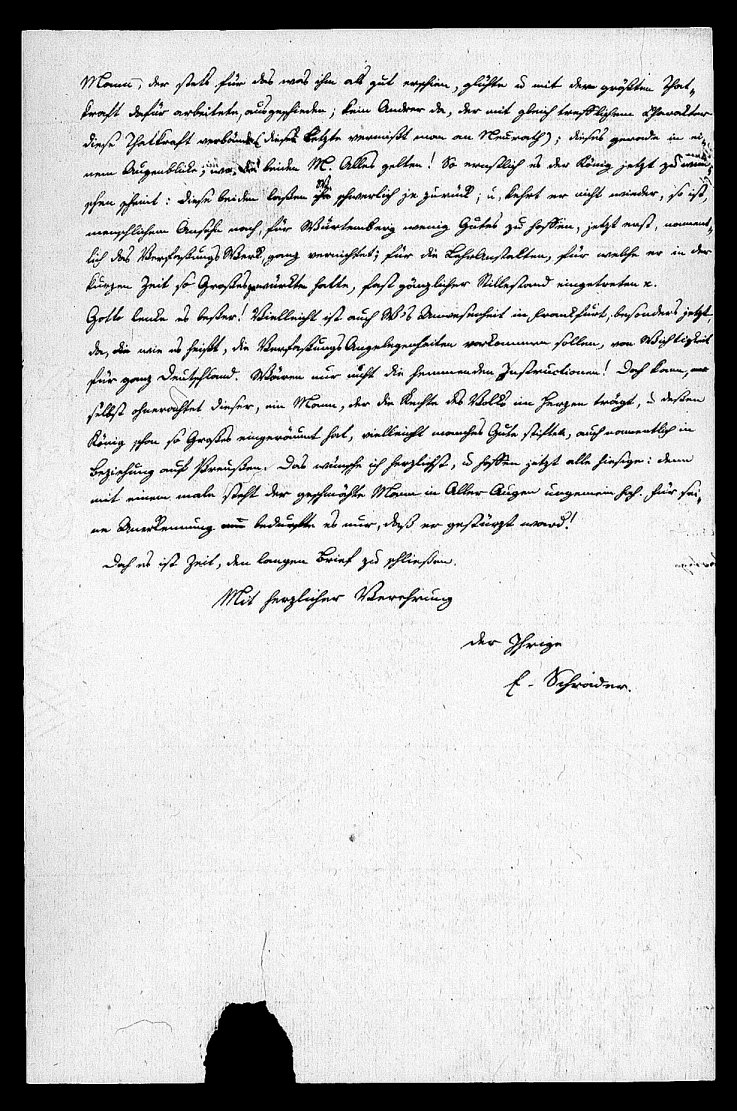 Mann, der stets für das was ihm als gut erschien, glühte u mit der größten That-
kraft dafür arbeitete, ausgeschieden; kein Andrer da, der mit gleich trefflichem Charakter
diese Thatkraft verbände (dieses Letzte vermißt man an Neurath); dieses gerade in ei-
nem Augenblicke, wo die beiden M. Alles gelten! So ernstlich es der König jetzt zu wün-
schen scheint: diese beiden laßen ihn schwerlich je zurück; u, kehrt er nicht wieder, so ist,
menschlichem Ansehn nach, für Würtemberg wenig Gutes zu hoffen, jetzt erst, nament-
lich das Verfaßungs Werk, ganz vernichtet; für die Lehranstalten, für welche er in der
kurzen Zeit so Großes gewürkt hatte, fast gänzlicher Stillestand eingetreten x.
Gott lenke es beßer! Vielleicht ist auch W's Anwesenheit in Frankfurt, besonders jetzt,
da, wie es heißt, die Verfaßungs Angelegenheiten vorkommen sollen, von Wichtigkeit
für ganz Deutschland. Wären nur nicht die hemmenden Instructionen! Doch kann,
selbst ohnerachtet dieser, ein Mann, der die Rechte des Volks im Herzen trägt, u deßen
König schon so Großes eingeräumt hat, vielleicht manches Gute stiften, auch namentlich in
Beziehung auf Preußen. Das wünsche ich herzlichst, u hoffen jetzt alle hiesige: denn
mit einem male steht der geschmähte Mann in Aller Augen ungemein hoch. Für sei-
ne Anerkennung bedurfte es nur, daß er gestürzt ward!
Doch es ist Zeit, den langen Brief zu schließen.
Mit herzlicher Verehrung
der Ihrige
E. Schrader.